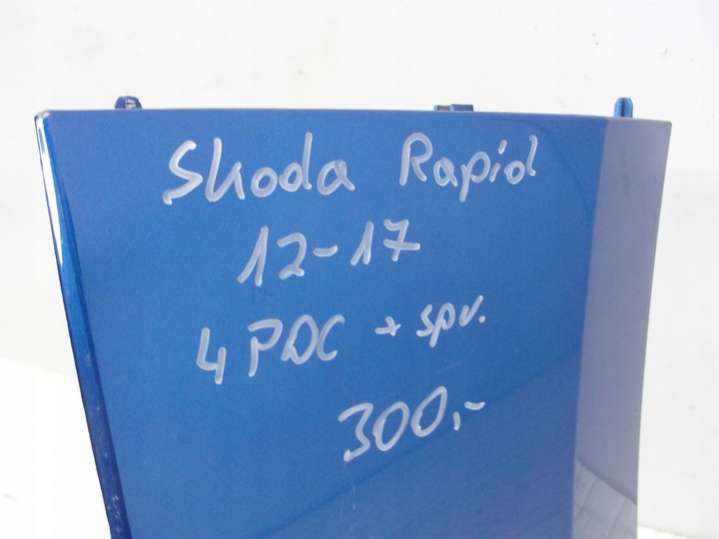 Skoda Rapid
12-17
4 PDC + spv.
300,-